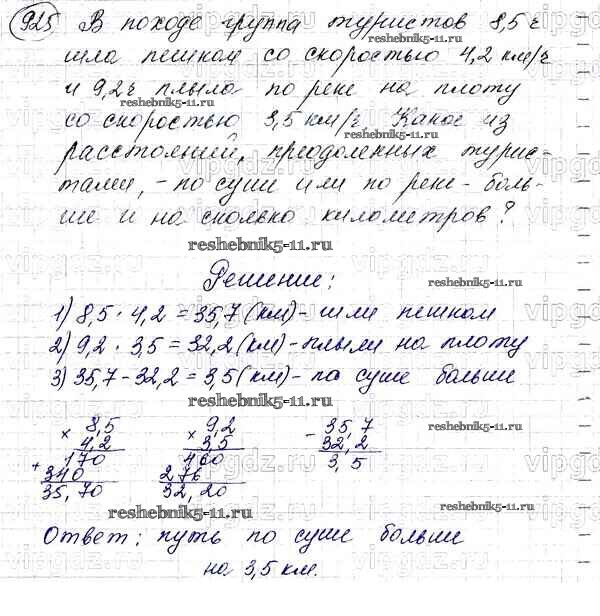 925 В походе группа туристов 8,5 ч
шла пешком со скоростью 4,2 км/ч
и 9,2 ч плыла по реке на плоту
reshebnik5-11.ru
со скоростью 3,5 км/ч. Какое из
расстояний, преодоленных турис-
тами, - по суше или по реке - боль-
ше и на сколько километров?
reshebnik5-11.ru
Решение:
reshebnik5-11.ru
1) 8,5 · 4,2 = 35,7 (км) - шли пешком
2) 9,2 · 3,5 = 32,2 (км) - плыли на плоту
3) 35,7 - 32,2 = 3,5 (км) - по суше больше
reshebnik5-11.ru
× 8,5 × 9,2 - 35,7
4,2 3,5 32,2
170 460 3,5
+ 340 276
35,70 32,20
reshebnik5-11.ru
reshebnik5-11.ru
Ответ: путь по суше больше
на 3,5 км.
vipgdz.ru